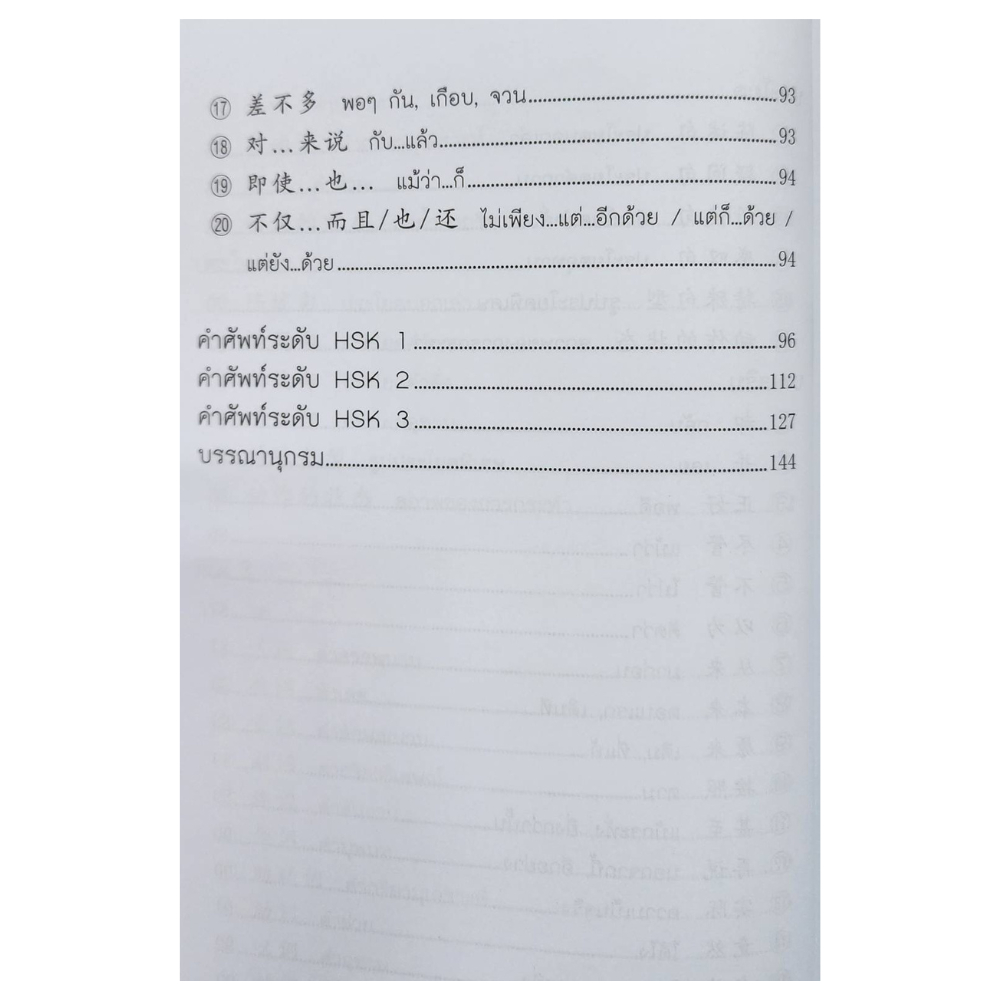 ⑰ 差不多 พอๆ กัน, เกือบ, จวน........................................93
⑱ 对...来说 กับ...แล้ว........................................93
⑲ 即使...也... แม้ว่า...ก็........................................94
⑳ 不仅...而且/也/还 ไม่เพียง...แต่...อีกด้วย / แต่ก็...ด้วย /
แต่ยัง...ด้วย........................................94
คำศัพท์ระดับ HSK 1........................................96
คำศัพท์ระดับ HSK 2........................................112
คำศัพท์ระดับ HSK 3........................................127
บรรณานุกรม........................................144